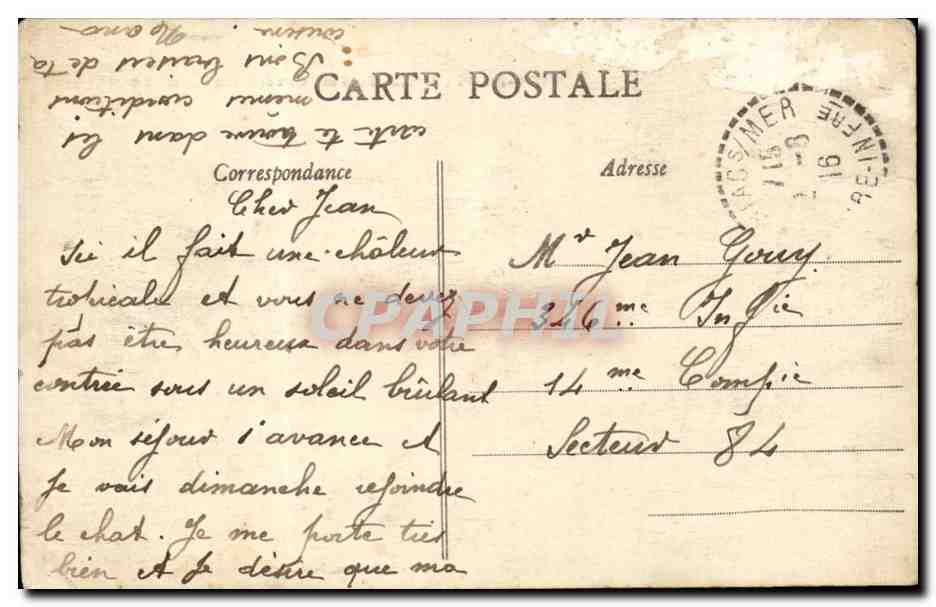 CARTE POSTALE
Correspondance
Cher Jean
Ici il fait une châleur
tropicale et vous ne devez
pas être heureux dans votre
contrée sous un soleil brûlant
Mon séjour s'avance et
Je vais dimanche rejoindre
le chat. Je me porte très
bien et Je désire que ma
carte te trouve dans les
memes conditions
Bons baisers de ta
cousine.
Adresse
Mr Jean Gouy.
346me Infie
14me Compie
Secteur 84
S/MER
7 15
-8
16
INFRE
CPAPHIL